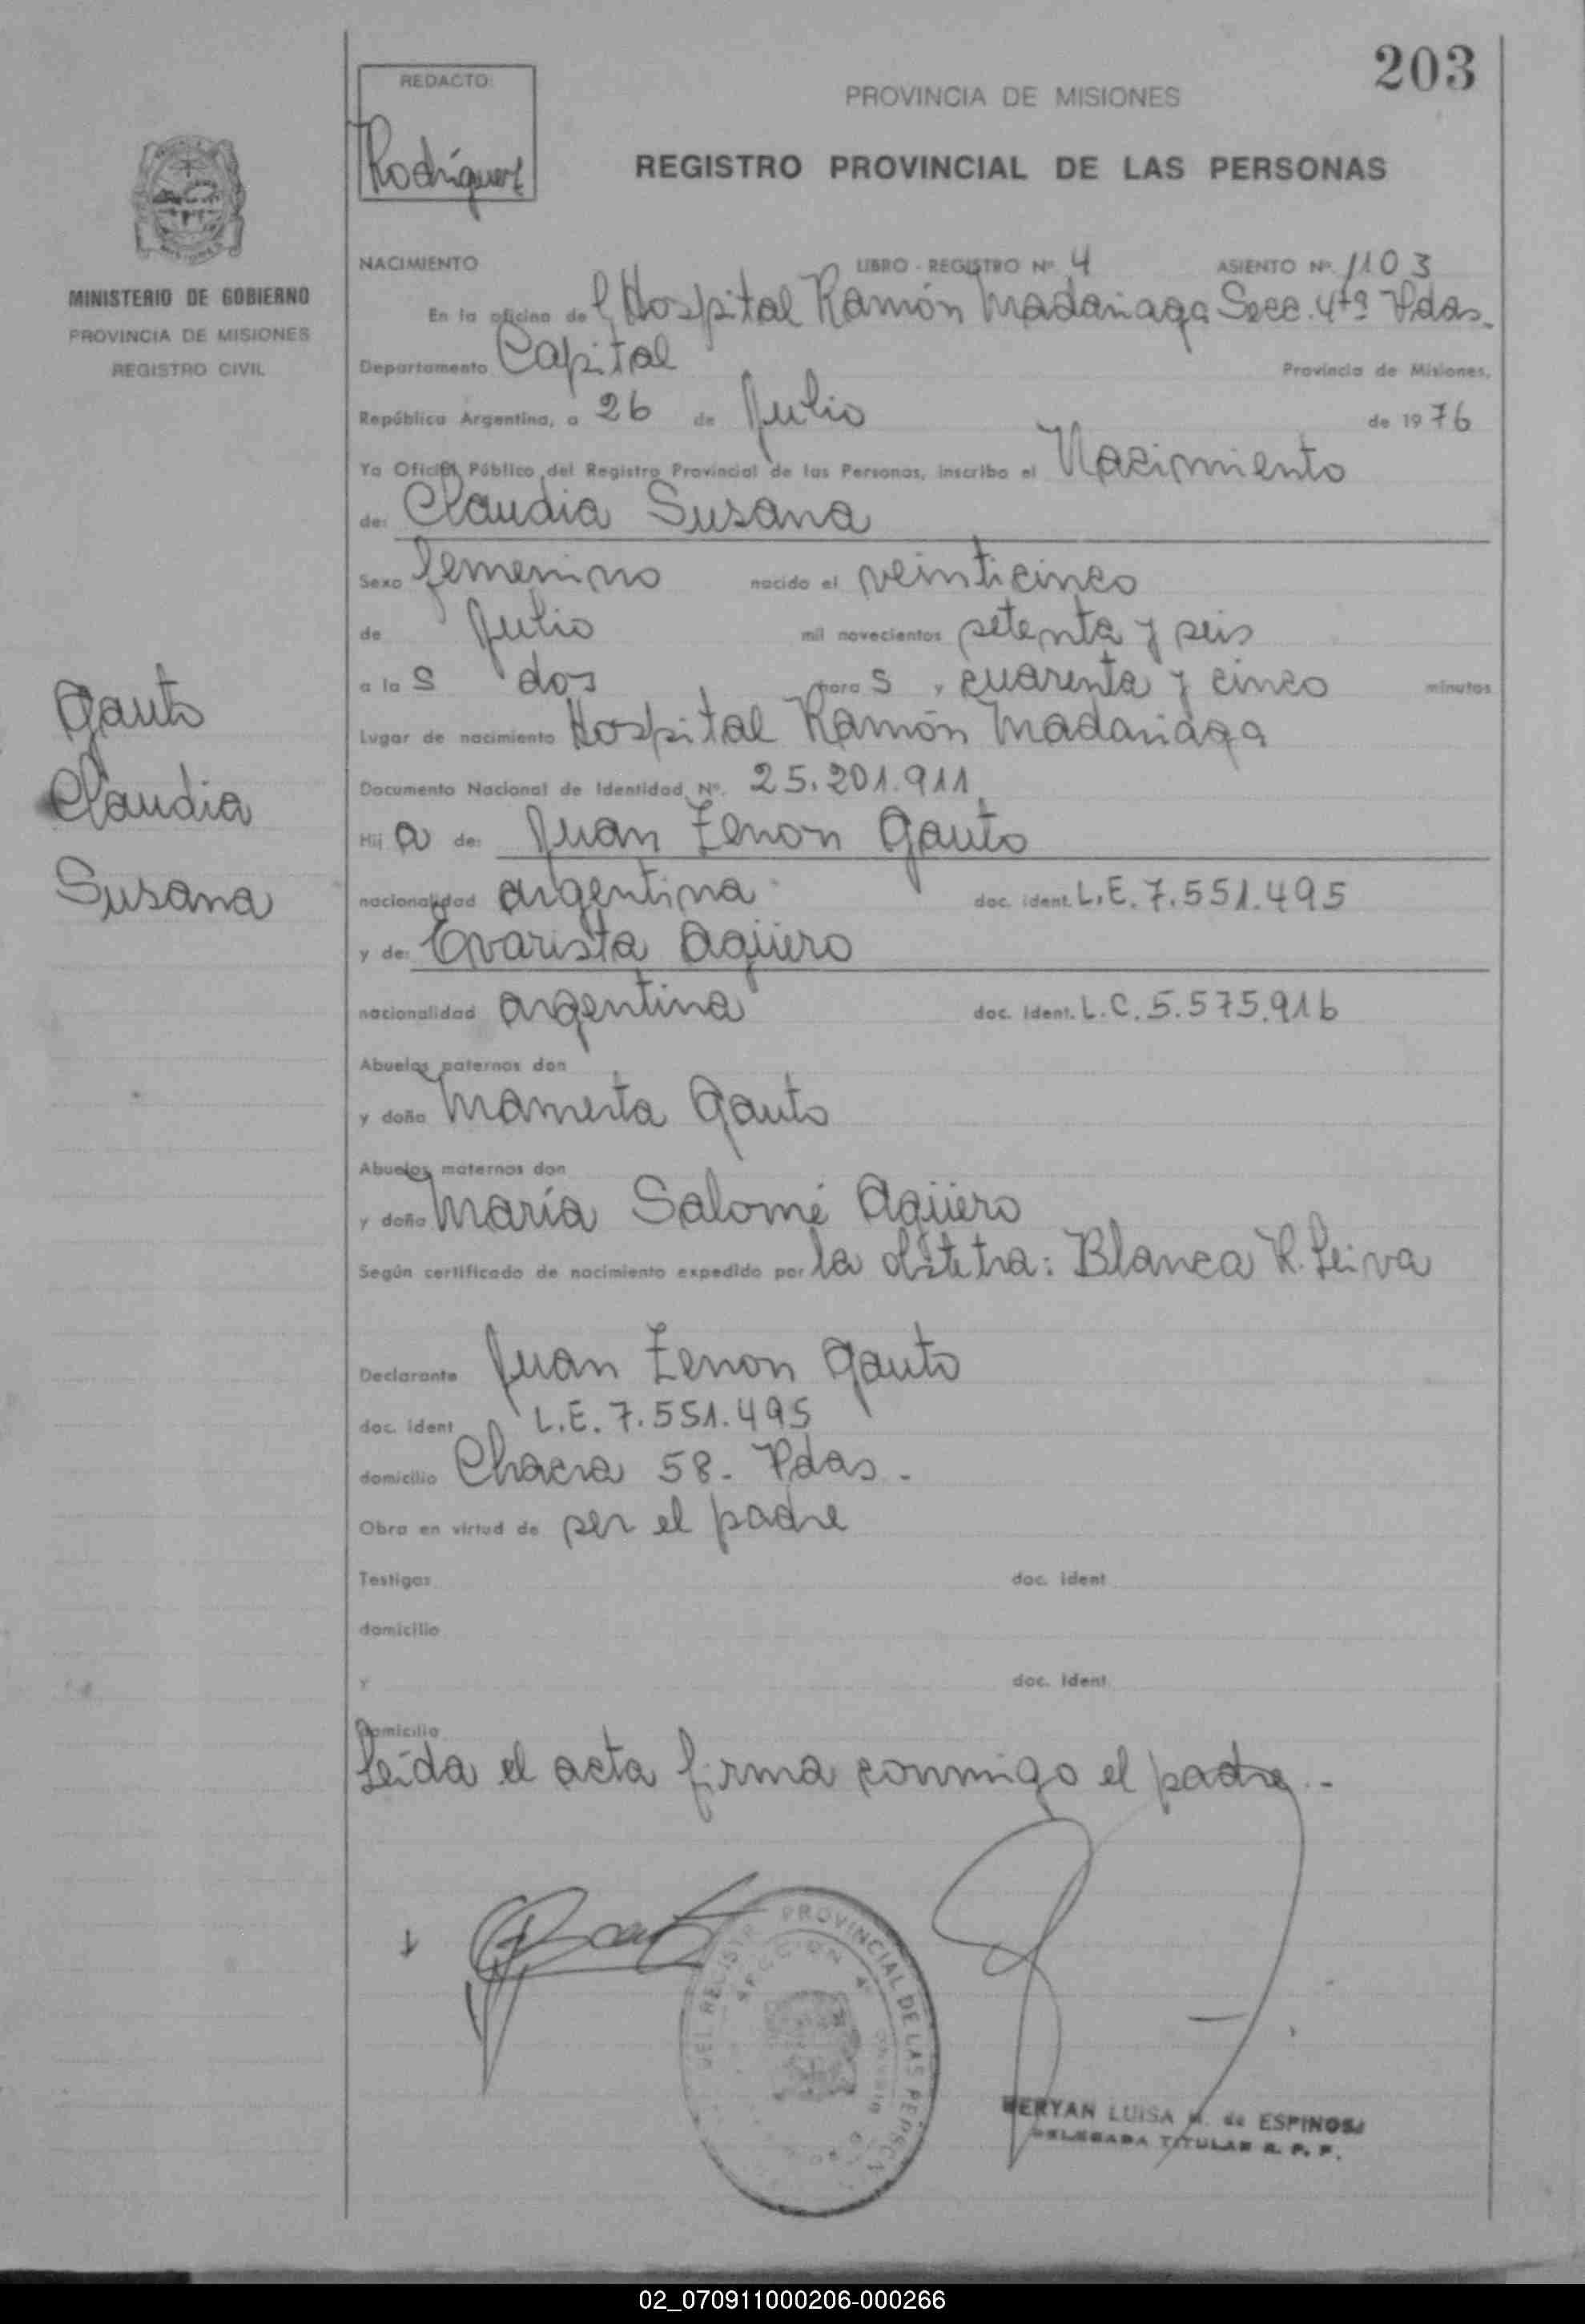 203
REDACTO:
Rodríguez
PROVINCIA DE MISIONES
REGISTRO PROVINCIAL DE LAS PERSONAS
MINISTERIO DE GOBIERNO
PROVINCIA DE MISIONES
REGISTRO CIVIL
NACIMIENTO LIBRO - REGISTRO Nº 4 ASIENTO Nº 1103
En la oficina del Hospital Ramón Madariaga Secc. 4ta Pdas.
Departamento Capital Provincia de Misiones,
República Argentina, a 26 de Julio de 1976
Yo Oficial Público del Registro Provincial de las Personas, inscribo el Nacimiento
de: Claudia Susana
Sexo femenino nacido el veinticinco
de Julio mil novecientos setenta y seis
a las dos horas y cuarenta y cinco minutos
Lugar de nacimiento Hospital Ramón Madariaga
Documento Nacional de Identidad Nº. 25.201.911
Hija de: Juan Zenon Gauto
nacionalidad argentina doc. ident. L.E. 7.551.495
y de: Evarista Agüero
nacionalidad argentina doc. ident. L.C. 5.575.916
Abuelos paternos don
y doña Mamerta Gauto
Abuelos maternos don
y doña María Salomé Agüero
Según certificado de nacimiento expedido por la obstetra: Blanca R. Leiva
Declarante Juan Zenon Gauto
doc. ident L.E. 7.551.495
domicilio Chacra 58. Pdas.
Obra en virtud de ser el padre
Testigos doc. ident
domicilio
y doc. ident
domicilio
Leída el acta firma conmigo el padre.-
Gauto
Claudia
Susana
DEL REGISTR PROVINCIAL DE LAS PERSON
SECCION 4
LUISA M. de ESPINOSA
DELEGADA TITULAR R. P. P.
02_070911000206-000266